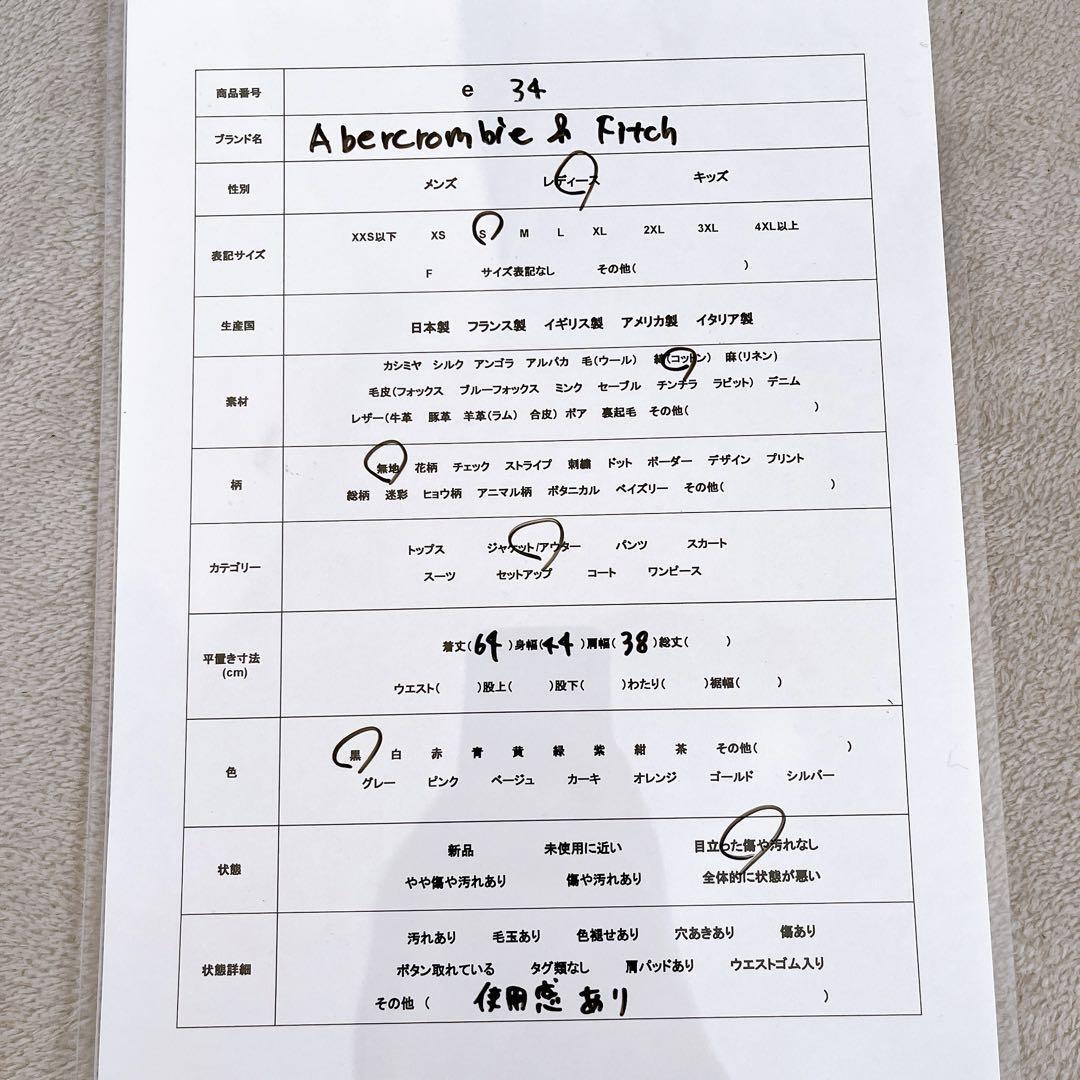 商品番号 e 34
ブランド名 Abercrombie & Fitch
性別 メンズ レディース キッズ
表記サイズ
XXS以下 XS S M L XL 2XL 3XL 4XL以上
F サイズ表記なし その他( )
生産国 日本製 フランス製 イギリス製 アメリカ製 イタリア製
素材
カシミヤ シルク アンゴラ アルパカ 毛(ウール) 綿(コットン) 麻(リネン)
毛皮(フォックス ブルーフォックス ミンク セーブル チンチラ ラビット) デニム
レザー(牛革 豚革 羊革(ラム) 合皮) ボア 裏起毛 その他( )
柄
無地 花柄 チェック ストライプ 刺繍 ドット ボーダー デザイン プリント
総柄 迷彩 ヒョウ柄 アニマル柄 ボタニカル ペイズリー その他( )
カテゴリー
トップス ジャケット/アウター パンツ スカート
スーツ セットアップ コート ワンピース
平置き寸法
(cm)
着丈(64)身幅(44)肩幅(38)総丈( )
ウエスト( )股上( )股下( )わたり( )裾幅( )
色
黒 白 赤 青 黄 緑 紫 紺 茶 その他( )
グレー ピンク ベージュ カーキ オレンジ ゴールド シルバー
状態
新品 未使用に近い 目立った傷や汚れなし
やや傷や汚れあり 傷や汚れあり 全体的に状態が悪い
状態詳細
汚れあり 毛玉あり 色褪せあり 穴あきあり 傷あり
ボタン取れている タグ類なし 肩パッドあり ウエストゴム入り
その他 ( 使用感 あり )